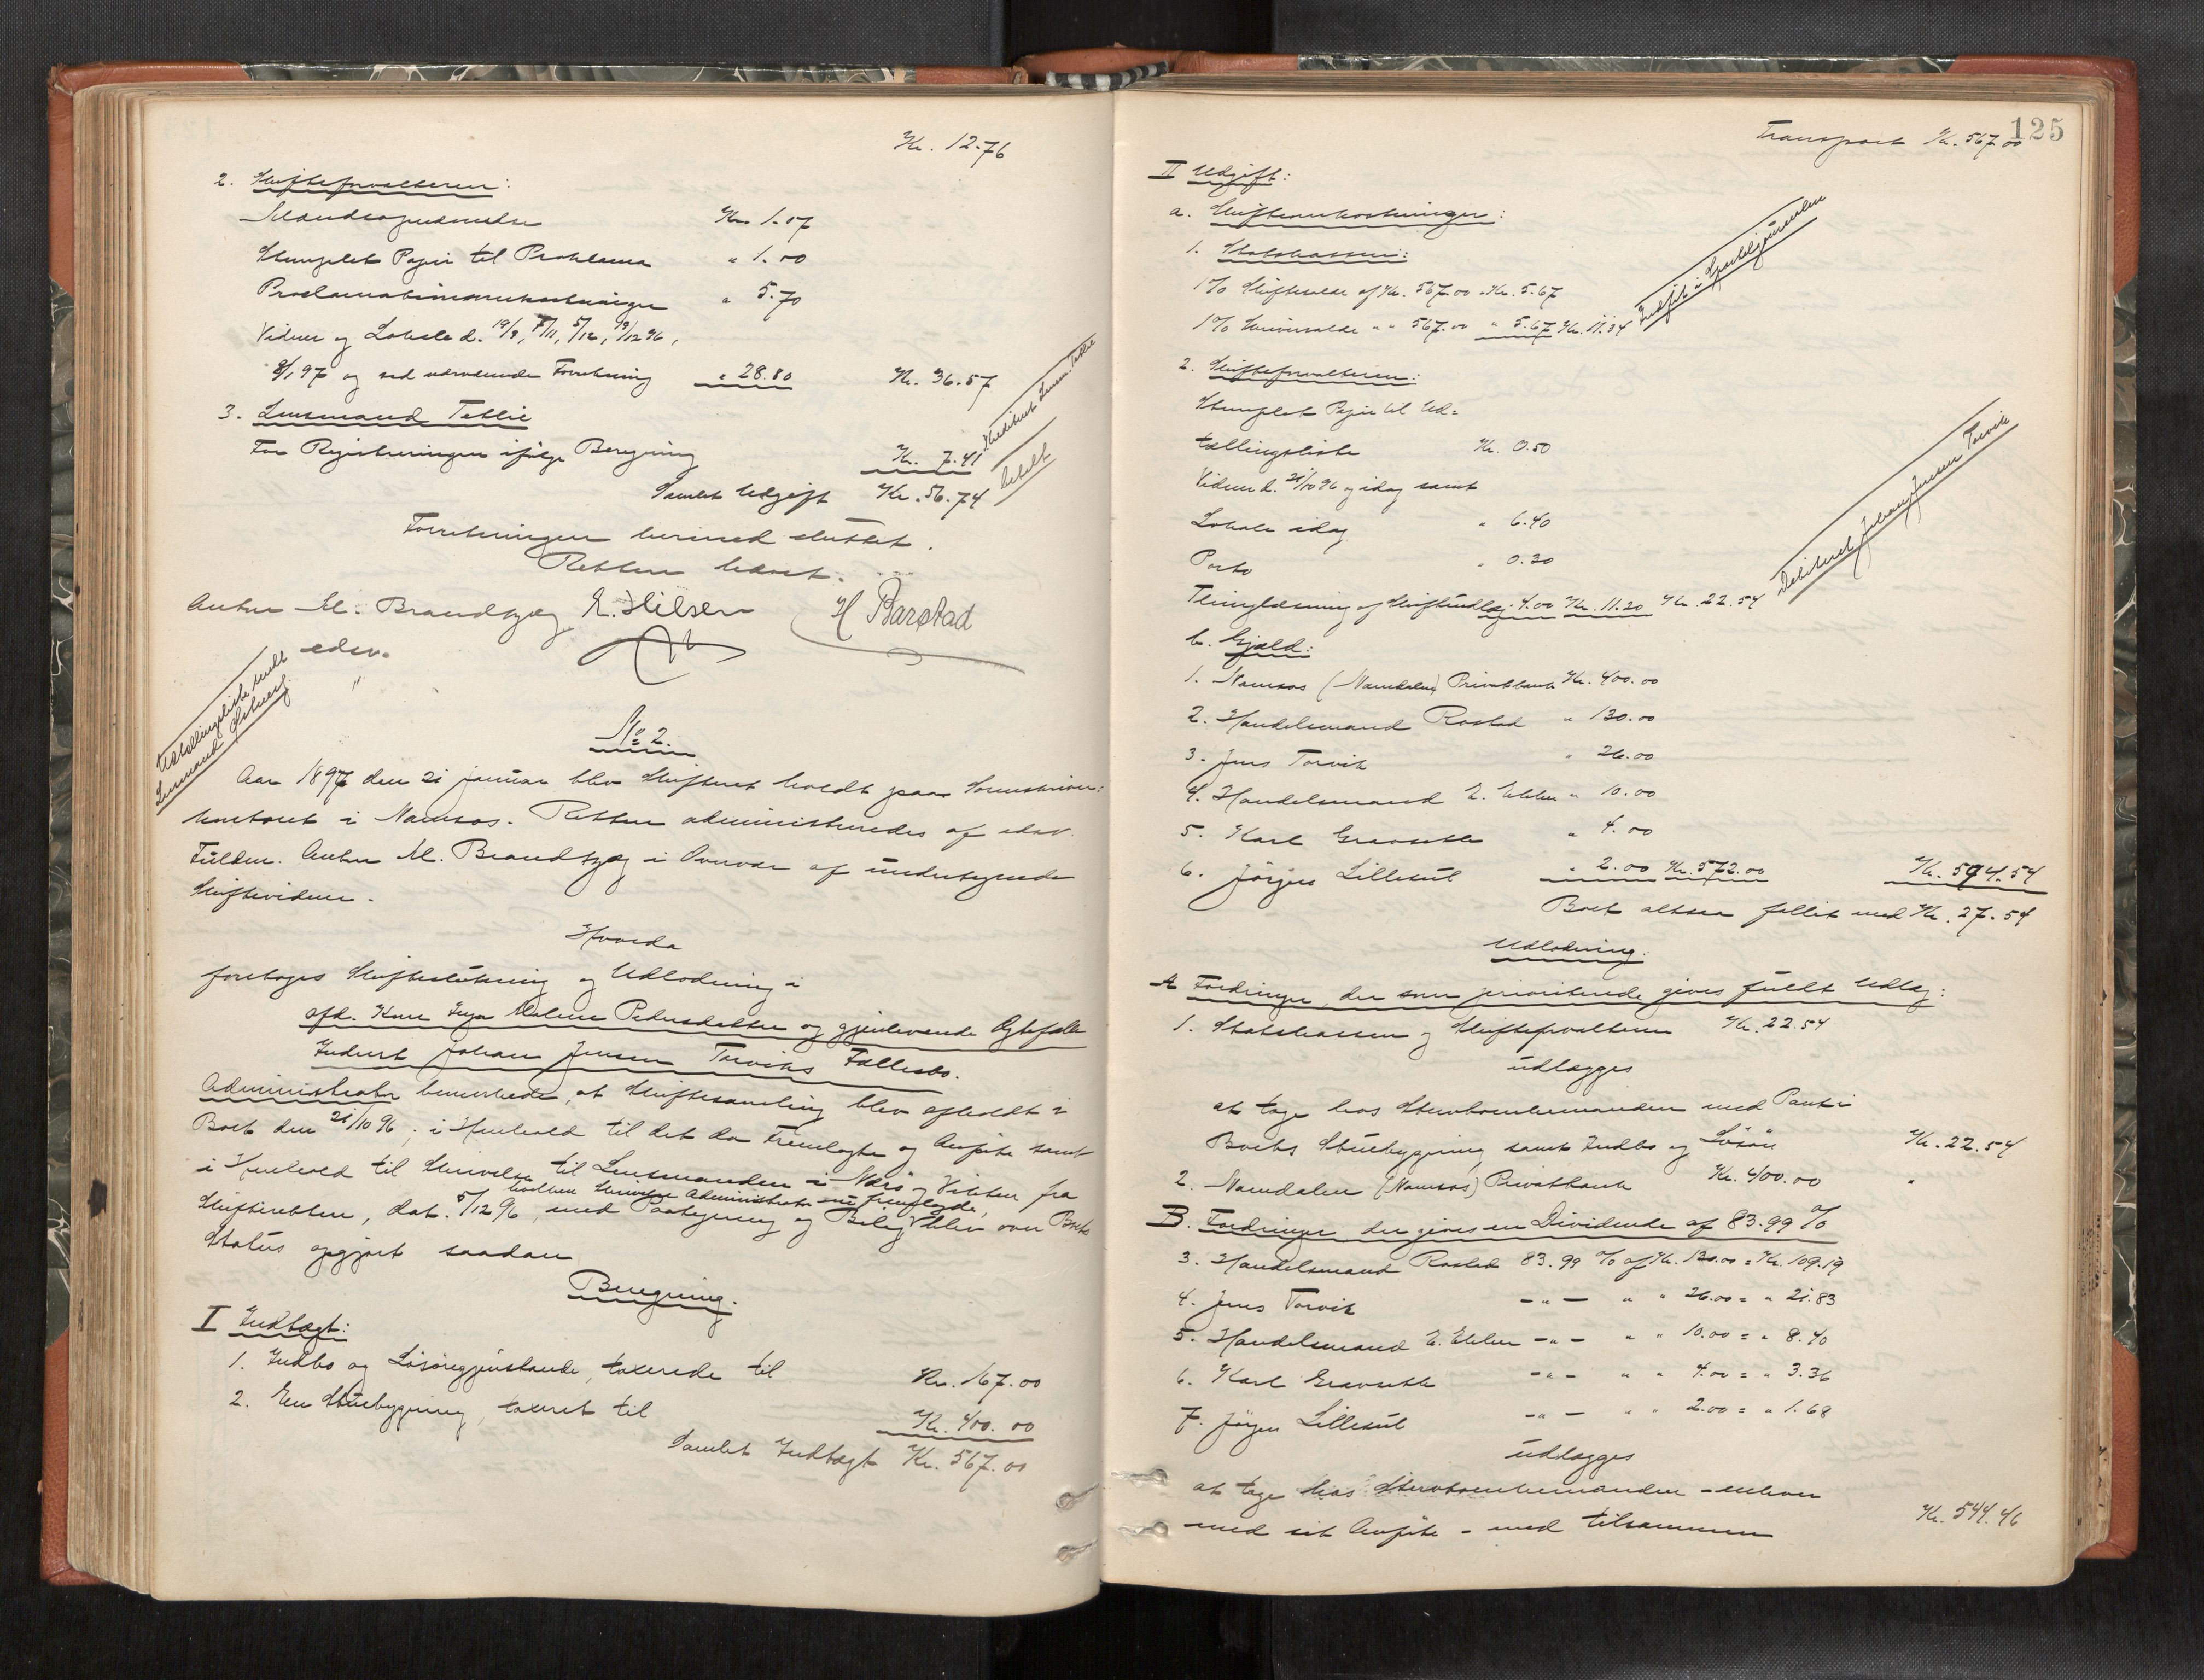 Kr. 12.76
2. Skifteforvalteren:
Kr. 1.07
Stemplet Papir til Proklama " 1.00
Proclamationsomkostninger " 5.70
Vidner og Lokale d. 19/9, 7/11, 5/12, 19/12 96,
8/1 97 og ved nærværende Forretning " 28.80 Kr. 36.57
3. Lensmand Tetlie
For Registreringen ifølge Beregning Kr. 7.41
Krediteret Lensm. Tetlie
betalt
Samlet Udgift Kr. 56.74
Forretningen hermed sluttet.
Retten hævet.
Anton M. Brandtzæg E. Hilsen H Barstad
edsv.
"
Udtællingsliste sendt
Lensmand
No 2.
Aar 1897 den 21 januar blev Skifteret holdt paa Sorenskriver-
kontoret i Namsos. Retten administreredes af edsv.
Fuldm. Anton M. Brandtzæg i Overvær af undertegnede
Skiftevidner.
Hvorda
foretoges Skifteslutning og Udlodning i
afd. Kone Inga Malene Pedersdatter og gjenlevende Ægtefælle
Inderst Johan Jensen Torviks Fællesbo.
Administrator bemærkede, at Skiftesamling blev afholdt i
Boet den 21/10 96; i Henhold til det da Fremlagte og Anførte samt
i Henhold til Skrivelse til Lensmanden i Nærø og Vikten fra
hvilken Skrivelse Administrator nu fremlagde,
Skifteretten, dat. 5/12 96, med Paategning og Bilag blev over Boets
Status opgjort saadan
Beregning.
I Indtægt:
1. Indbo og Løsøregjenstande, taxerede til Kr. 167.00
2. En Stuebygning, taxeret til Kr. 400.00
Samlet Indtægt Kr. 567.00
125
Transport Kr. 567.00
II Udgift:
a. Skifteomkostninger:
1. Statskassen:
1% Skiftesalær af Kr. 567.00 = Kr. 5.67
1% " " 567.00 " 5.67 Kr. 11.34
Indført i Sporteljournalen
2. Skifteforvalteren:
Stemplet Papir til Ud=
tællingsliste Kr. 0.50
Vidner d. 21/10 96 og idag samt
Lokale idag " 6.40
Porto " 0.30
Thinglæsning af Skifteudlæg " 4.00 Kr. 11.20 Kr. 22.54
Debiteret Johan Jensen Torvik
b. Gjæld:
1. Namsos (Namdalens) Privatbank Kr. 400.00
2. Handelsmand Rostad " 130.00
3. Jens Torvik " 26.00
4. Handelsmand E. " 10.00
5. Karl " 4.00
6. Jörgen " 2.00 Kr. 572.00 Kr. 594.54
Boet altsaa fallit med Kr. 27.54
Udlodning.
A Fordringer, der som prioriterede gives fuldt Udlæg:
1. Statskassen og Skifteforvalteren Kr. 22.54
udlægges
at tage hos Stervboenkemanden med Pant i
Boets Stuebygning samt Indbo og Løsøre Kr. 22.54
2. Namdalen (Namsos) Privatbank Kr. 400.00 "
B. Fordringer, der gives en Dividende af 83.99 %
3. Handelsmand Rostad 83.99 % af Kr. 130.00 = Kr. 109.19
4. Jens Torvik - " - " " 26.00 = " 21.83
5. Handelsmand E. - " - " " 10.00 = " 8.40
6. Karl - " - " " 4.00 = " 3.36
7. Jörgen - " - " " 2.00 = " 1.68
udlægges
at tage hos Stervboenkemanden - enhver
med sit Anførte - med tilsammen Kr. 544.46